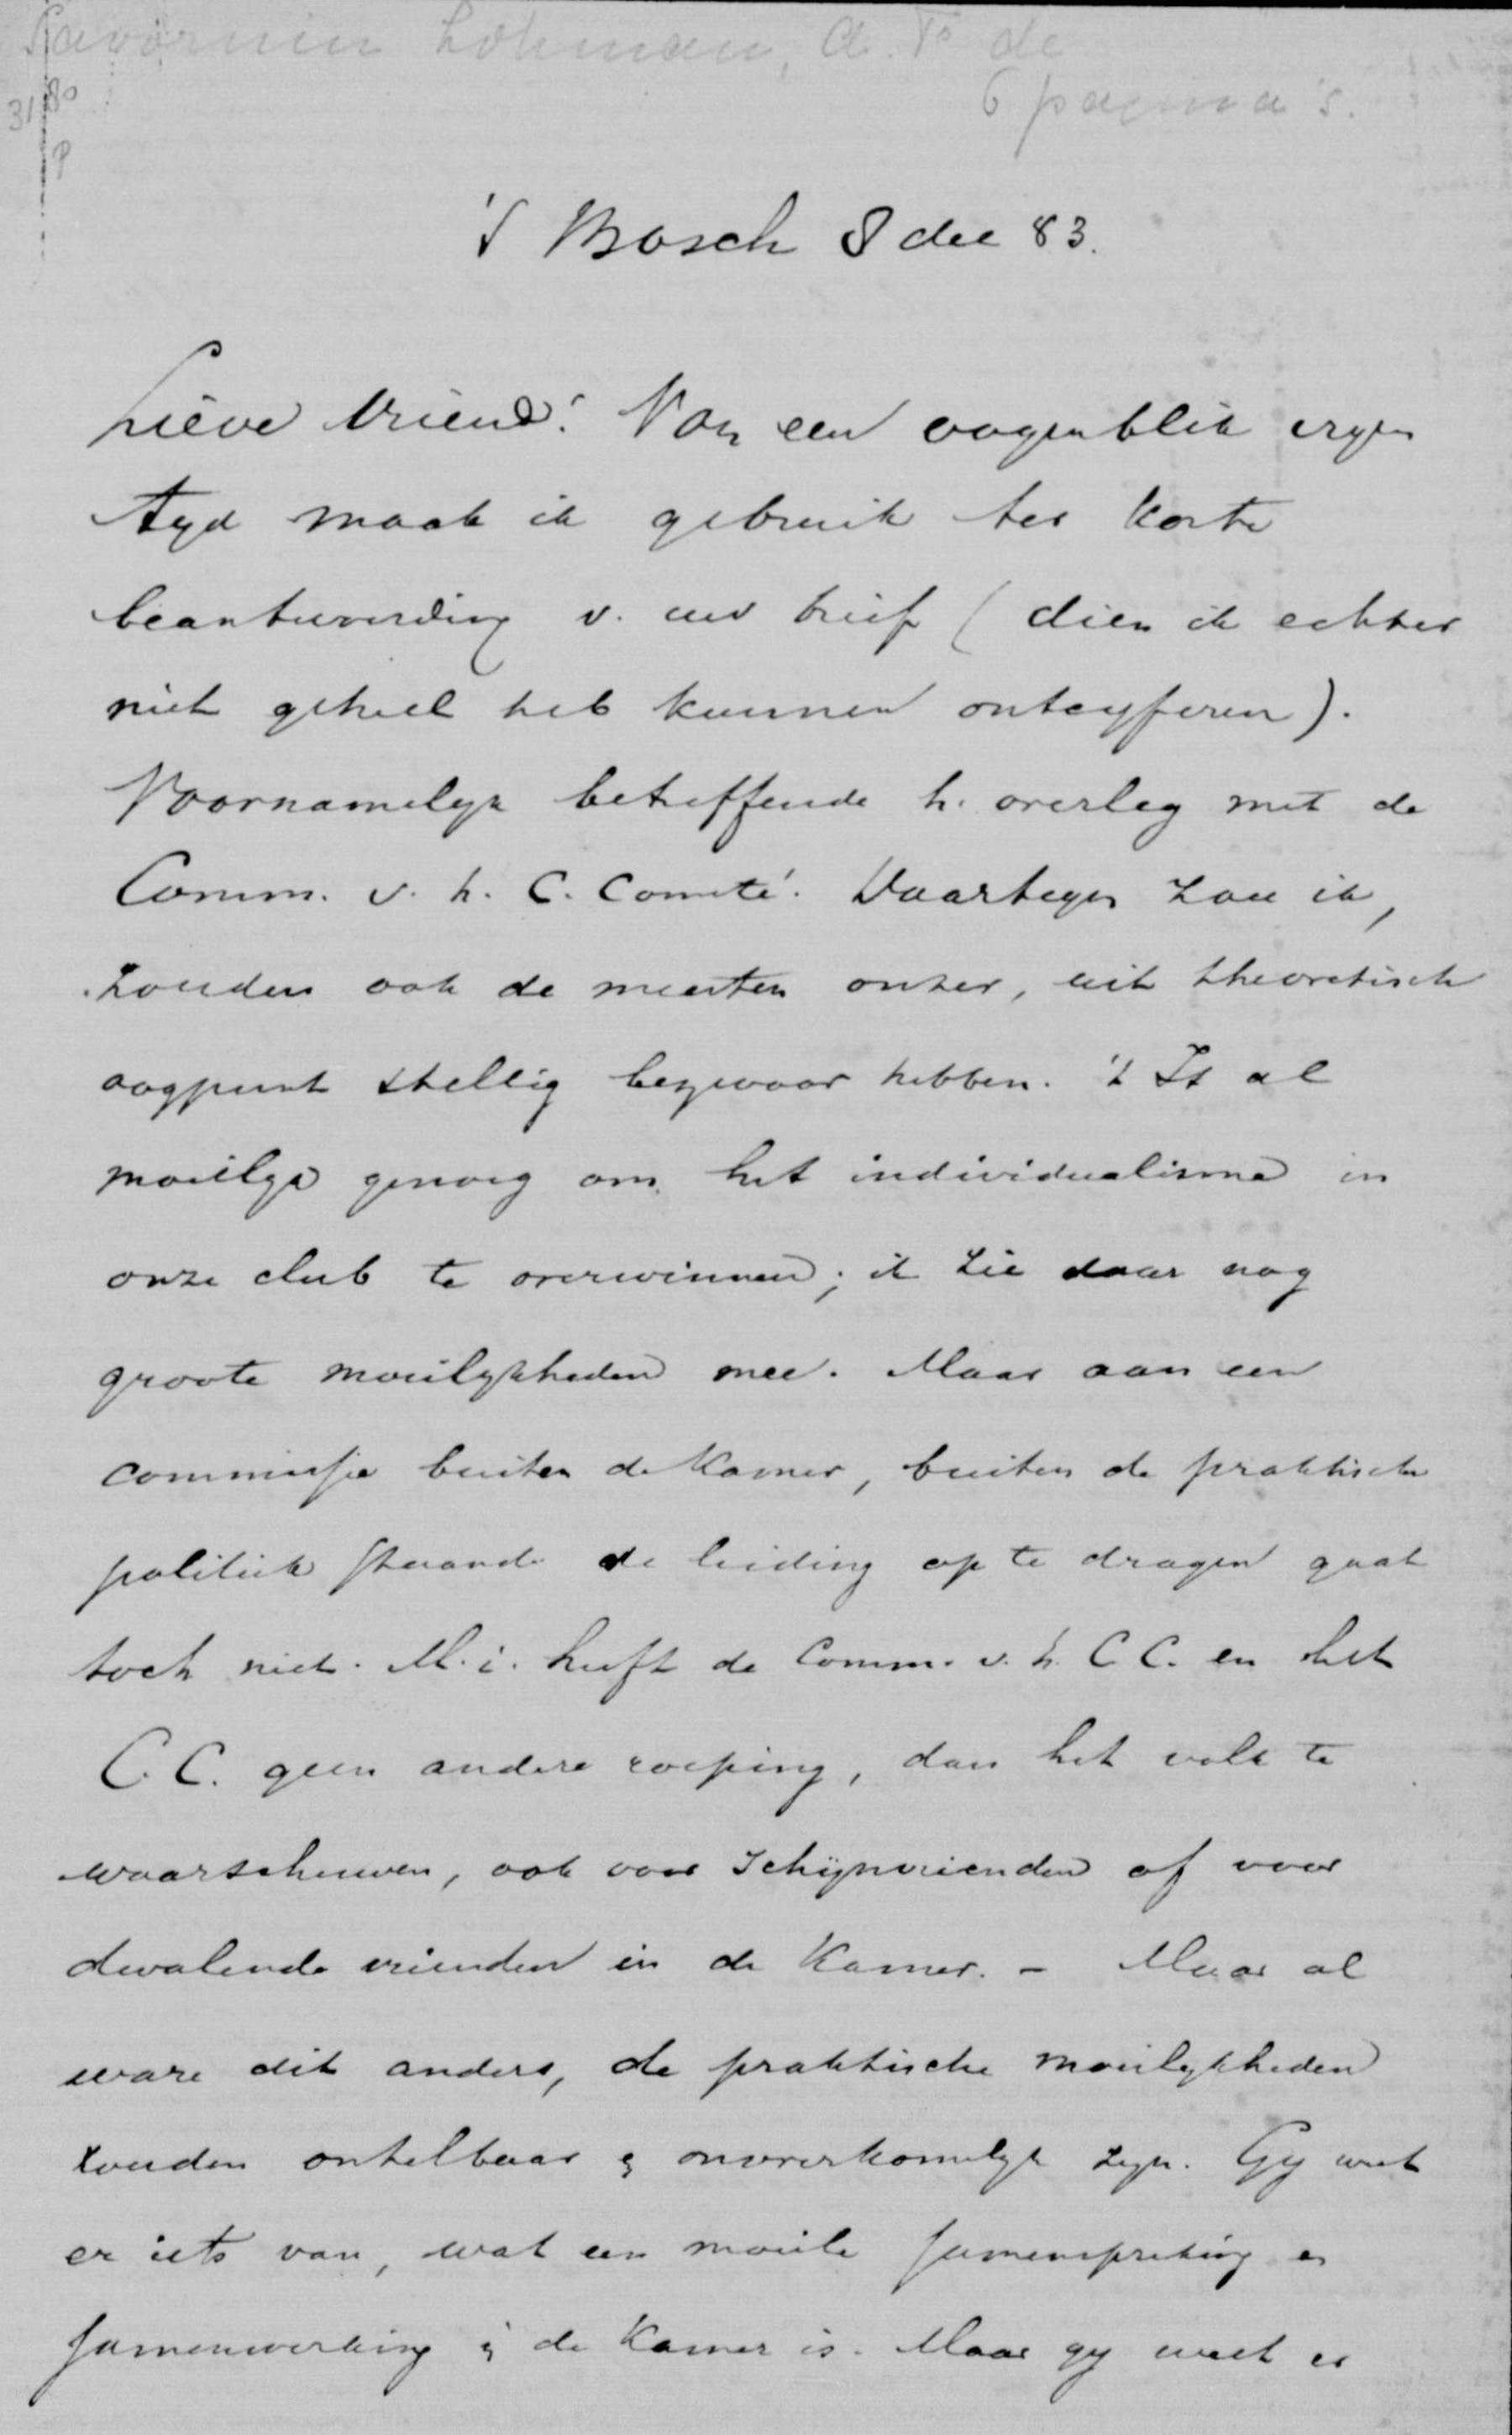 Savornin Lohman, A. F. de
6 pagina's.
31/80
P
's Bosch 8 dec 83.
Lieve Vriend! Van een oogenblik eigen
tyd maak ik gebruik ter korte
beantwoording v. uw brief (dien ik echter
niet geheel heb kunnen ontcyferen).
Voornamelyk betreffende h. overleg met de
Comm. v. h. C. Comité. Daartegen zou ik,
zouden ook de meesten onzer, uit theoretisch
oogpunt stellig bezwaar hebben. 't Is al
moeilyk genoeg om het individualisme in
onze club te overwinnen; ik zie daar nog
groote moeilykheden mee. Maar aan een
commissie buiten de Kamer, buiten de praktische
politiek staande de leiding op te dragen gaat
toch niet. M.i. heeft de Comm. v. h. C C. en het
C. C. geen andere roeping, dan het volk te
waarschuwen, ook voor Schijnvrienden of voor
dwalende vrienden in de Kamer. - Maar al
ware dit anders, de praktische moeilykheden
zouden ontelbaar & onoverkomelyk zyn. Gy weet
er iets van, wat een moeite samenspreking en
samenwerking in de Kamer is. Maar gy weet er